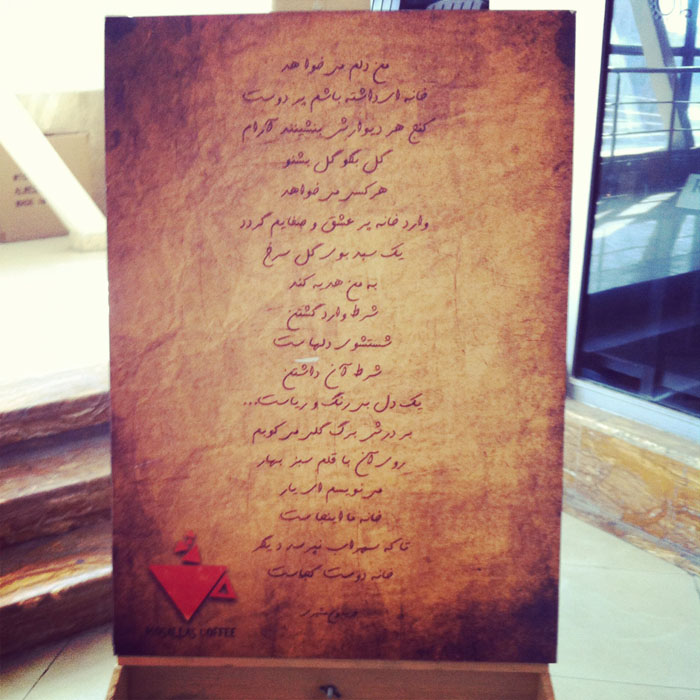 من دلم می خواهد
خانه ای داشته باشم پر دوست
کنج هر دیوارش بنشینند آرام
گل بگو گل بشنو
هرکسی می خواهد
وارد خانه پر عشق و صفایم گردد
یک سبد بوی گل سرخ
به من هدیه کند
شرط وارد گشتن
شستشوی دلهاست
شرط آن داشتن
یک دل بی رنگ و ریاست...
بر درش برگ گلی می کوبم
روی آن با قلم سبز بهار
می نویسم ای یار
خانه ما اینجاست
تا که سهراب نپرسد دیگر
خانه دوست کجاست
MOSALLAS COFFEE